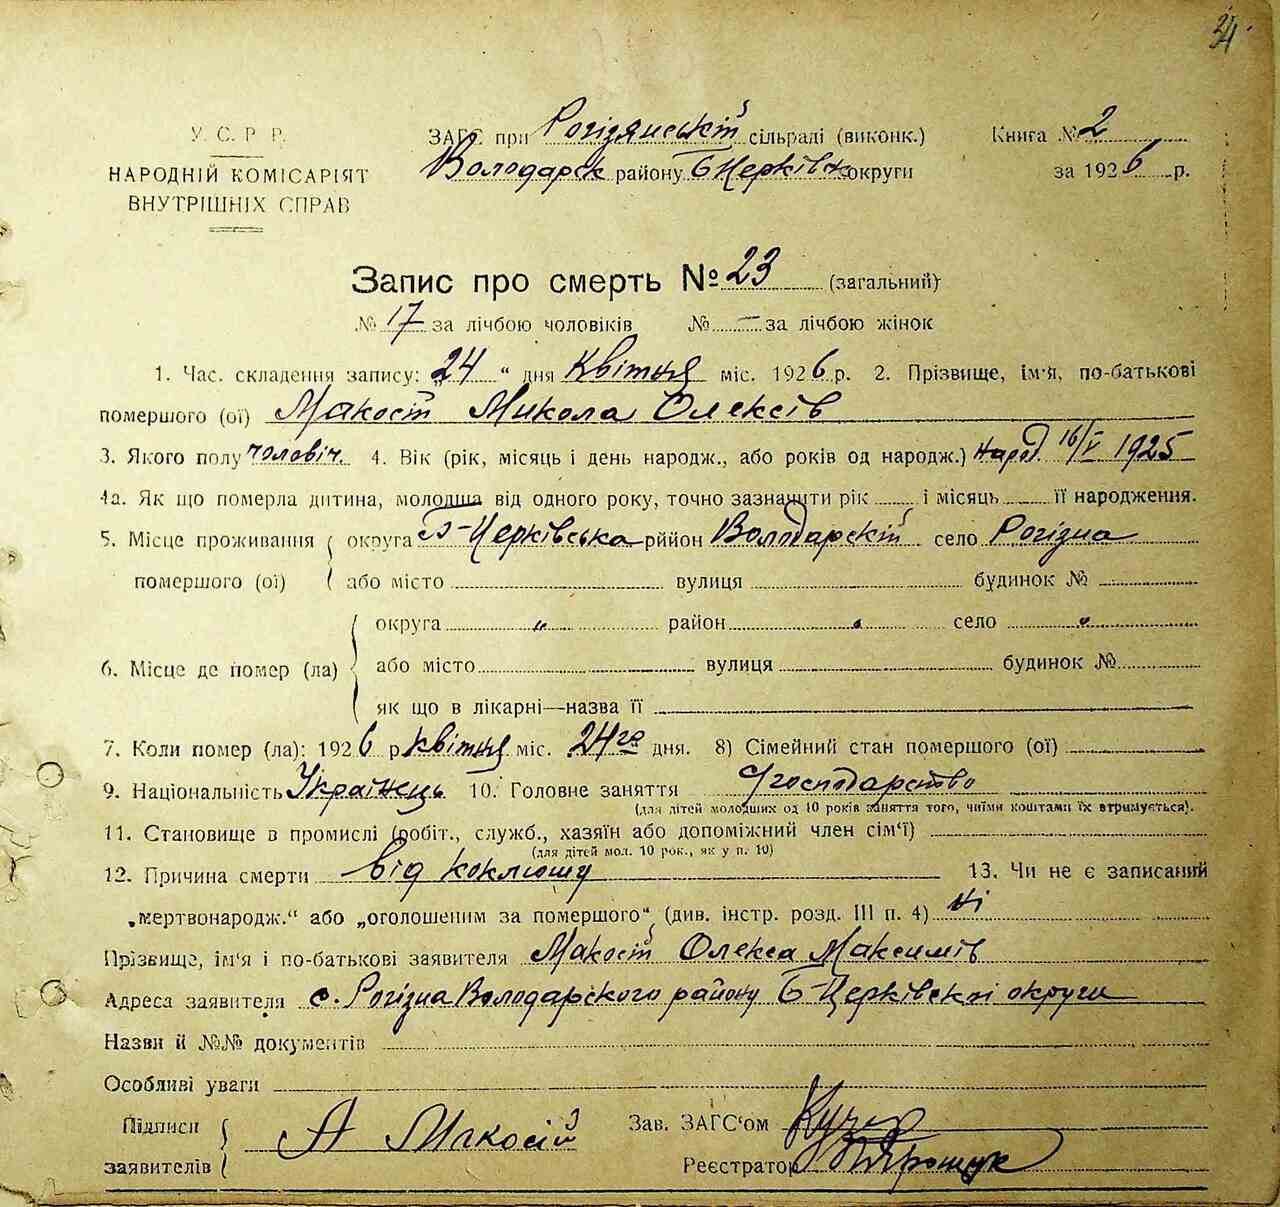 34
У. С. Р. Р.
НАРОДНІЙ КОМІСАРІЯТ
ВНУТРІШНІХ СПРАВ
ЗАГС при Рогізянській сільраді (виконк.)
Володарск району Б Церківск округи
Книга № 2
за 1926 р.
Запис про смерть № 23 (загальний)
№ 17 за лічбою чоловіків № — за лічбою жінок
1. Час складення запису: „24“ дня Квітня міс. 1926 р. 2. Прізвище, ім'я, по-батькові
помершого (ої) Макосій Микола Олексів
3. Якого полу чоловіч. 4. Вік (рік, місяць і день народж., або років од народж.) Народ. 16/V 1925
4а. Як що померла дитина, молодша від одного року, точно зазначити рік і місяць її народження.
5. Місце проживання округа Б-Церківська рййон Володарскій село Рогізна
помершого (ої) або місто вулиця будинок №
округа „ район „ село „
6. Місце де помер (ла) або місто вулиця будинок №
як що в лікарні—назва її
7. Коли помер (ла): 1926 р Квітня міс. 24го дня. 8) Сімейний стан помершого (ої)
9. Національність Українець 10. Головне заняття господарство
(для дітей молодших од 10 років заняття того, чиїми коштами їх втримується).
11. Становище в промислі (робіт., служб., хазяїн або допоміжний член сім'ї)
(для дітей мол. 10 рок., як у п. 10)
12. Причина смерти від коклюшу 13. Чи не є записаний
„мертвонародж.“ або „оголошеним за помершого“ (див. інстр. розд. III п. 4) ні
Прізвище, ім'я і по-батькові заявителя Макосій Олекса Максимів
Адреса заявителя с. Рогізна Володарского району Б-Церківскої округи
Назви й №№ документів
Особливі уваги
Підписи заявителів А Макосій
Зав. ЗАГС'ом
Реєстратор